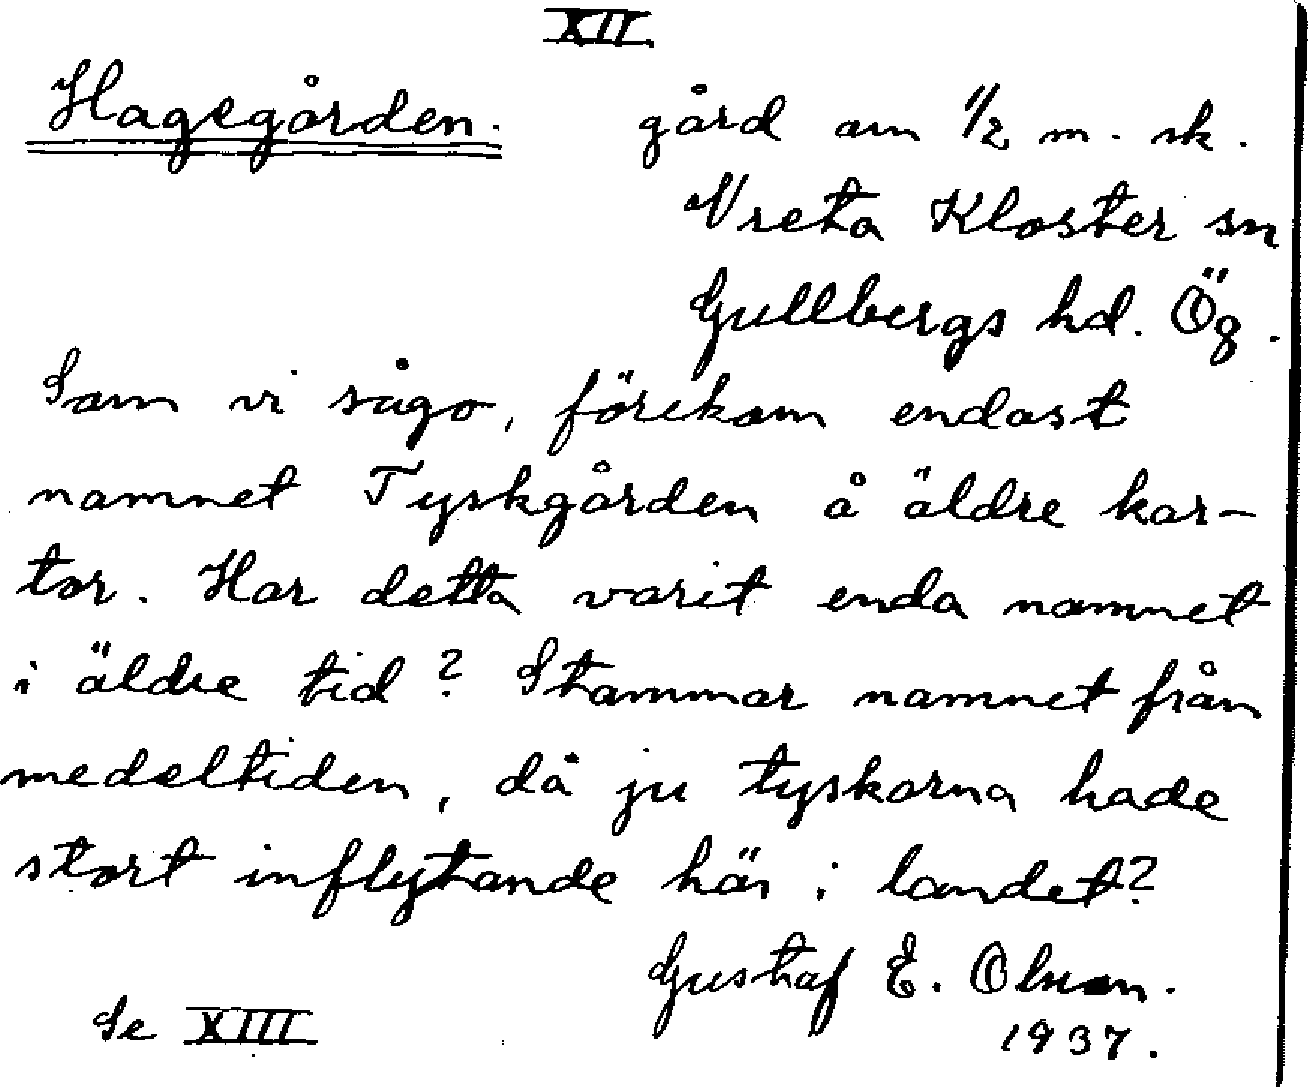 XII.
Hagegården. gård om 1/2 m. sk.
Vreta Kloster sn
Gullbergs hd. Ög.
Som vi sågo, förekom endast
namnet Tyskgården å äldre kar-
tor. Har detta varit enda namnet
i äldre tid? Stammar namnet från
medeltiden, då ju tyskarna hade
stort inflytande här i landet?
Gustaf E. Olsson.
Se XIII
1937.